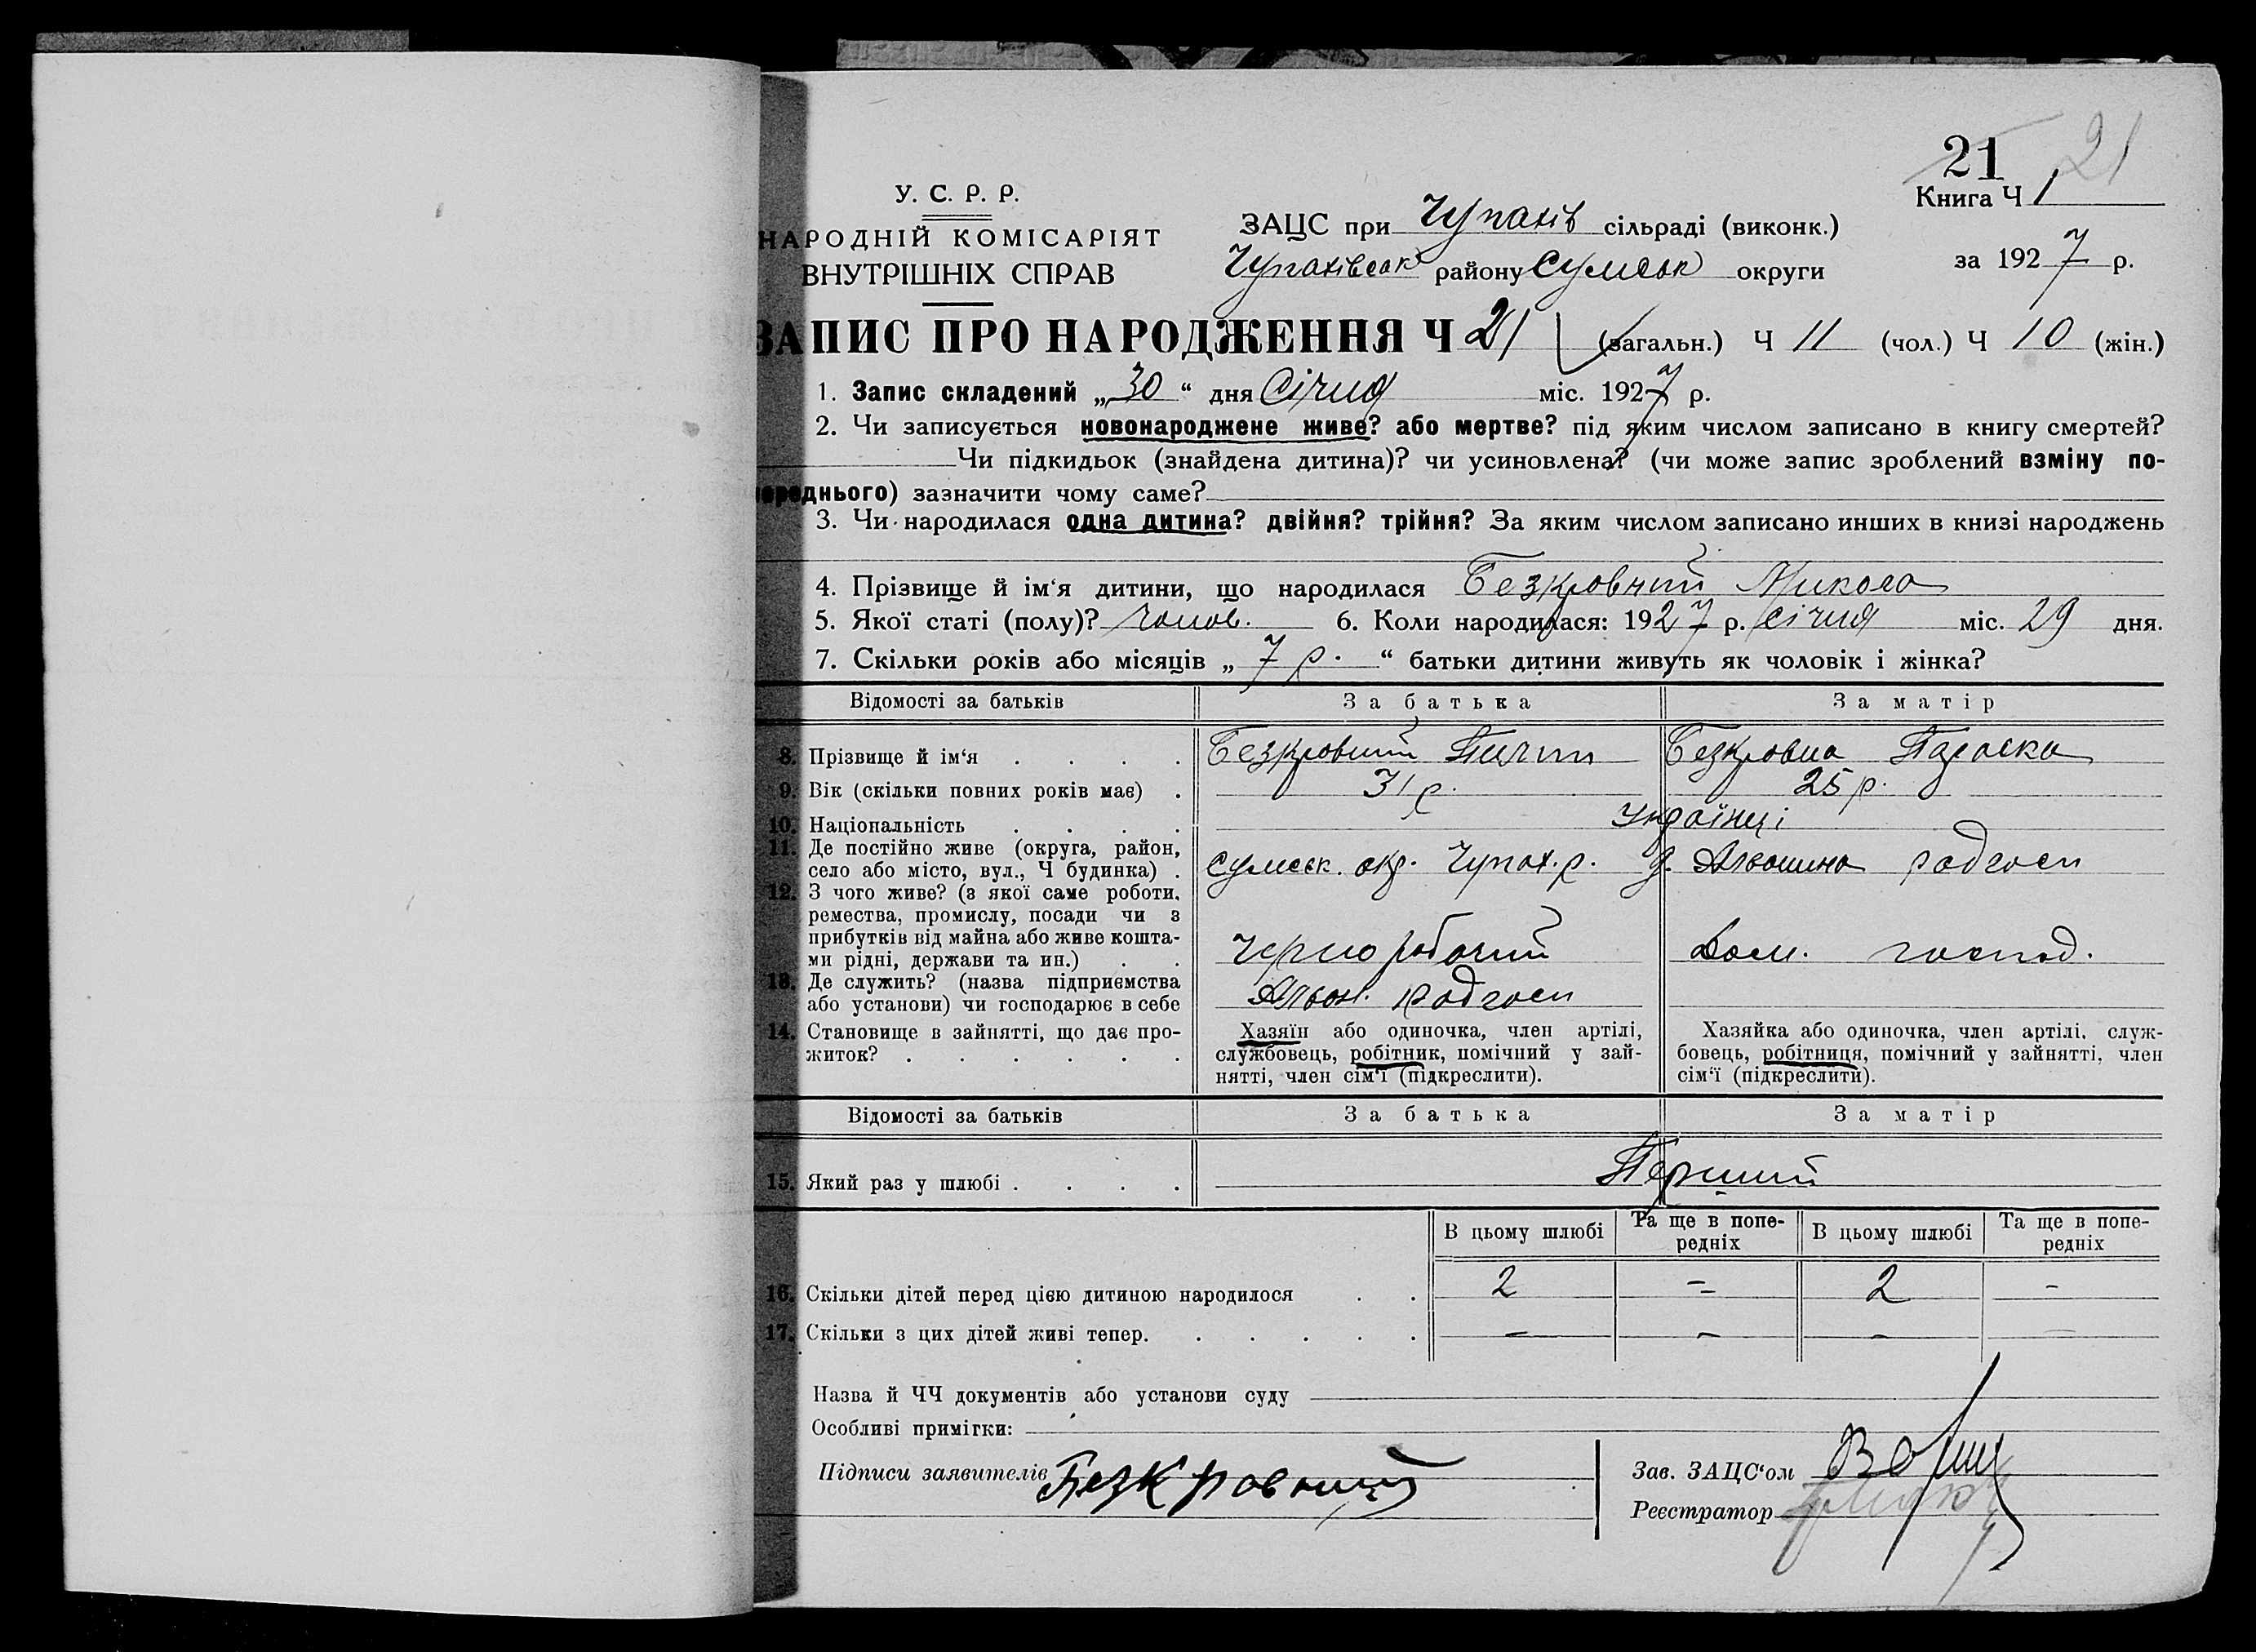 21 21
У. С. Р. Р.
Книга Ч 1
НАРОДНІЙ КОМІСАРІЯТ
ЗАЦС при Чупахів сільраді (виконк.)
ВНУТРІШНІХ СПРАВ
Чупахівськ району Сумськ округи
за 1927 р.
ЗАПИС ПРО НАРОДЖЕННЯ Ч 21 (загальн.) Ч 11 (чол.) Ч 10 (жін.)
1. Запис складений „30“ дня Січня міс. 1927 р.
2. Чи записується новонароджене живе? або мертве? під яким числом записано в книгу смертей?
Чи підкидьок (знайдена дитина)? чи усиновлена? (чи може запис зроблений взміну по-
переднього) зазначити чому саме?
3. Чи народилася одна дитина? двійня? трійня? За яким числом записано инших в книзі народжень
4. Прізвище й ім‘я дитини, що народилася Безкровний Микола
5. Якої статі (полу)? чолов. 6. Коли народилася: 1927 р. січня міс. 29 дня.
7. Скільки років або місяців „7 р.“ батьки дитини живуть як чоловік і жінка?
Відомості за батьків За батька За матір
8. Прізвище й ім‘я Безкровний Безкровна Параска
9. Вік (скільки повних років має) 31 р. 25 р.
10. Національність Українці
11. Де постійно живе (округа, район,
село або місто, вул., Ч будинка) Сумськ. окр. Чупах. р. радгосп
12. З чого живе? (з якої саме роботи,
ремества, промислу, посади чи з
прибутків від майна або живе кошта-
ми рідні, держави та ин.) Чорноробочий Дом. господ.
13. Де служить? (назва підприємства
або установи) чи господарює в себе радгосп
14. Становище в зайнятті, що дає про-
житок?
Хазяїн або одиночка, член артілі,
службовець, робітник, помічний у зай-
нятті, член сім‘ї (підкреслити).
Хазяйка або одиночка, член артілі, служ-
бовець, робітниця, помічний у зайнятті, член
сім‘ї (підкреслити).
Відомості за батьків За батька За матір
15. Який раз у шлюбі Перший
В цьому шлюбі Та ще в попе-
редніх В цьому шлюбі Та ще в попе-
редніх
16. Скільки дітей перед цією дитиною народилося 2 – 2 –
17. Скільки з цих дітей живі тепер. – – – –
Назва й ЧЧ документів або установи суду
Особливі примітки:
Підписи заявителів Безкровний
Зав. ЗАЦС‘ом
Реєстратор